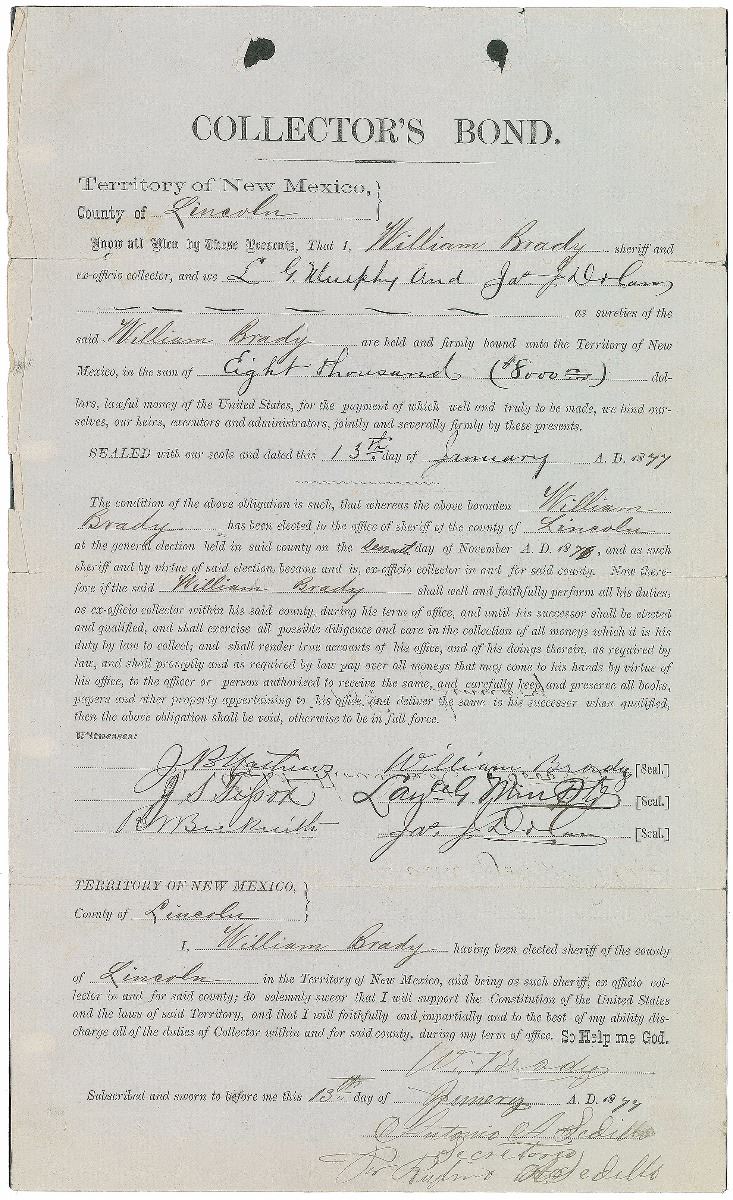 COLLECTOR'S BOND.
Territory of New Mexico,
County of Lincoln
Know all Men by These Presents, That I, William Brady sheriff and
ex-officio collector, and we L G. Murphy and Jas J. Dolan
as sureties of the
said William Brady are held and firmly bound unto the Territory of New
Mexico, in the sum of Eight thousand ($8000 00) dol-
lars, lawful money of the United States, for the payment of which well and truly to be made, we bind our-
selves, our heirs, executors and administrators, jointly and severally firmly by these presents.
SEALED with our seals and dated this 13th day of January A. D. 1877
The condition of the above obligation is such, that whereas the above bounden William
Brady has been elected to the office of sheriff of the county of Lincoln
at the general election held in said county on the day of November A. D. 1876, and as such
sheriff and by virtue of said election, became and is, ex-officio collector in and for said county. Now there-
fore if the said William Brady shall well and faithfully perform all his duties,
as ex-officio collector within his said county, during his term of office, and until his successor shall be elected
and qualified, and shall exercise all possible diligence and care in the collection of all moneys which it is his
duty by law to collect; and shall render true accounts of his office, and of his doings therein, as required by
law, and shall promptly and as required by law pay over all moneys that may come to his hands by virtue of
his office, to the officer or person authorized to receive the same, and carefully keep and preserve all books,
papers and other property appertaining to his office, and deliver the same to his successor when qualified,
then the above obligation shall be void, otherwise to be in full force.
Witnesses:
J. B. Mathews William Brady [Seal.]
J S Tison Lawce G. Murphy [Seal.]
Jas. J. Dolan [Seal.]
TERRITORY OF NEW MEXICO,
County of Lincoln
I, William Brady having been elected sheriff of the county
of Lincoln in the Territory of New Mexico, and being as such sheriff, ex officio col-
lector in and for said county; do solemnly swear that I will support the Constitution of the United States
and the laws of said Territory, and that I will faithfully and impartially and to the best of my ability dis-
charge all of the duties of Collector within and for said county, during my term of office. So Help me God.
W. Brady
Subscribed and sworn to before me this 13th day of A. D. 1877
Antonio Sedillo
Por Sedillo